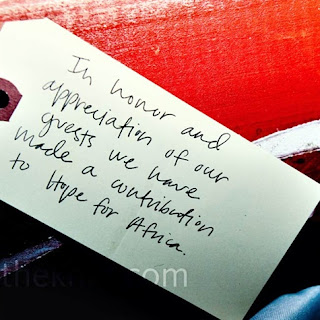 In honor and
appreciation of our
guests we have
made a contribution
to Hope for Africa.
theknot.com